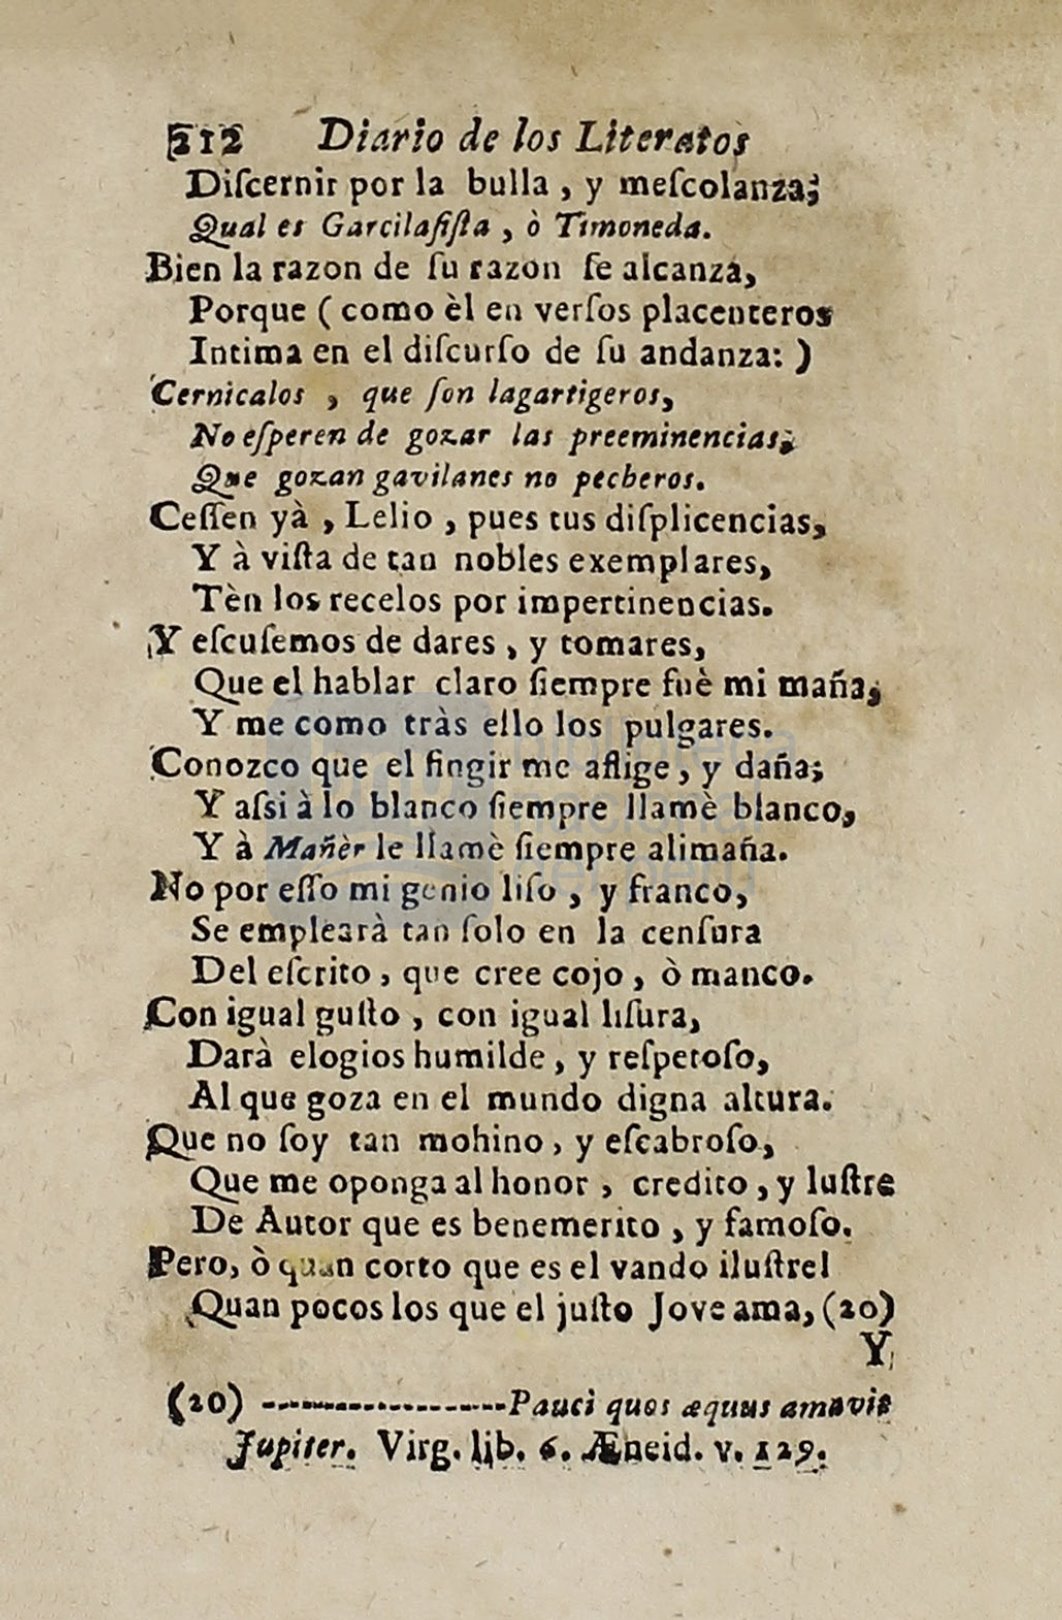 212 Diario de los Literatos
Diſcernir por la bulla , y meſcolanza;
Qual es Garcilaſiſta , ò Timoneda.
Bien la razon de ſu razon ſe alcanza,
Porque ( como èl en verſos placenteros
Intima en el diſcurſo de ſu andanza: )
Cernicalos , que ſon lagartigeros,
No eſperen de gozar las preeminencias,
Que gozan gavilanes no pecheros.
Ceſſen yà , Lelio , pues tus diſplicencias,
Y à viſta de tan nobles exemplares,
Tèn los recelos por impertinencias.
Y eſcuſemos de dares , y tomares,
Que el hablar claro ſiempre fuè mi maña,
Y me como tràs ello los pulgares.
Conozco que el fingir me aflige , y daña;
Y aſsi à lo blanco ſiempre llamè blanco,
Y à Mañèr le llamè ſiempre alimaña.
No por eſſo mi genio liſo , y franco,
Se emplearà tan ſolo en la cenſura
Del eſcrito , que cree cojo , ò manco.
Con igual guſto , con igual liſura,
Darà elogios humilde , y reſpetoſo,
Al que goza en el mundo digna altura.
Que no ſoy tan mohino , y eſcabroſo,
Que me oponga al honor , credito , y luſtre
De Autor que es benemerito , y famoſo.
Pero, ò quan corto que es el vando iluſtre!
Quan pocos los que el juſto Jove ama, (20)
Y
(20) ------------------Pauci quos æquus amavit
Jupiter. Virg. lib. 6. Æneid. v. 129.
biblioteca
nacional
del perú